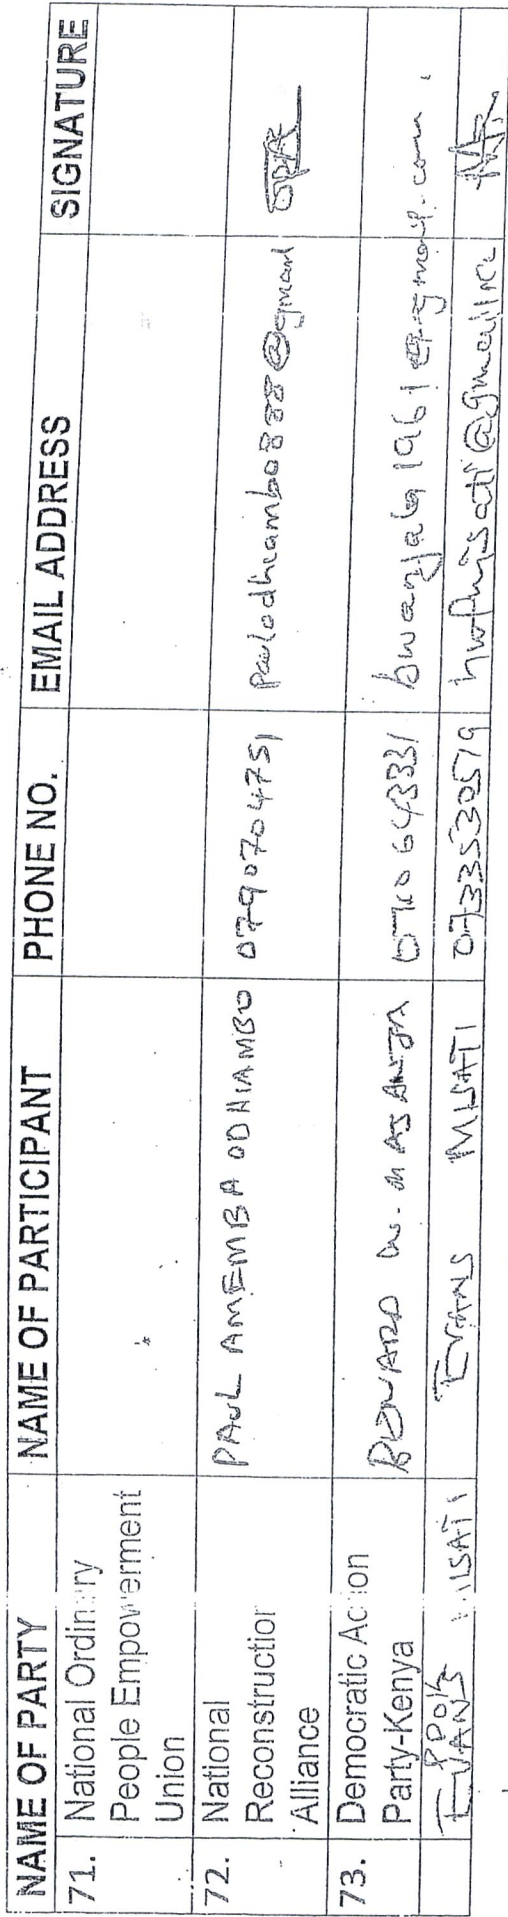 NAME OF PARTY NAME OF PARTICIPANT PHONE NO. EMAIL ADDRESS SIGNATURE
71. National Ordinary
People Empowerment
Union
72. National
Reconstruction
Alliance
PAUL AMEMBA ODHIAMBO 0790704751 Paulodhiambo888@gmail
73. Democratic Action
Party-Kenya
0710643331
EVANS MISATI
EVANS MISATI 0733530579